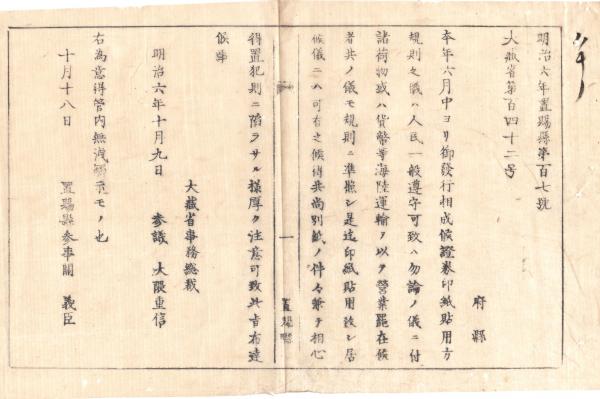 明治六年置賜縣第百七號
大蔵省第百四十二号
府縣
本年六月中ヨリ御發行相成候證券印紙貼用方
規則之儀ハ人民一般遵守可致ハ勿論ノ儀ニ付
諸荷物或ハ貨幣等海陸運輸ヲ以テ營業罷在候
者共ノ儀モ規則ニ準照シ是迄印紙貼用致シ居
候儀ニハ可有之候得共尚別紙ノ件々兼テ相心
置賜縣
一
得置犯則ニ陷ラサル様厚ク注意可致此旨布達
候事
明治六年十月九日
大蔵省事務總裁
参議 大隈重信
右為意得管内無洩觸示モノ也
十月十八日
置賜縣参事關 義臣